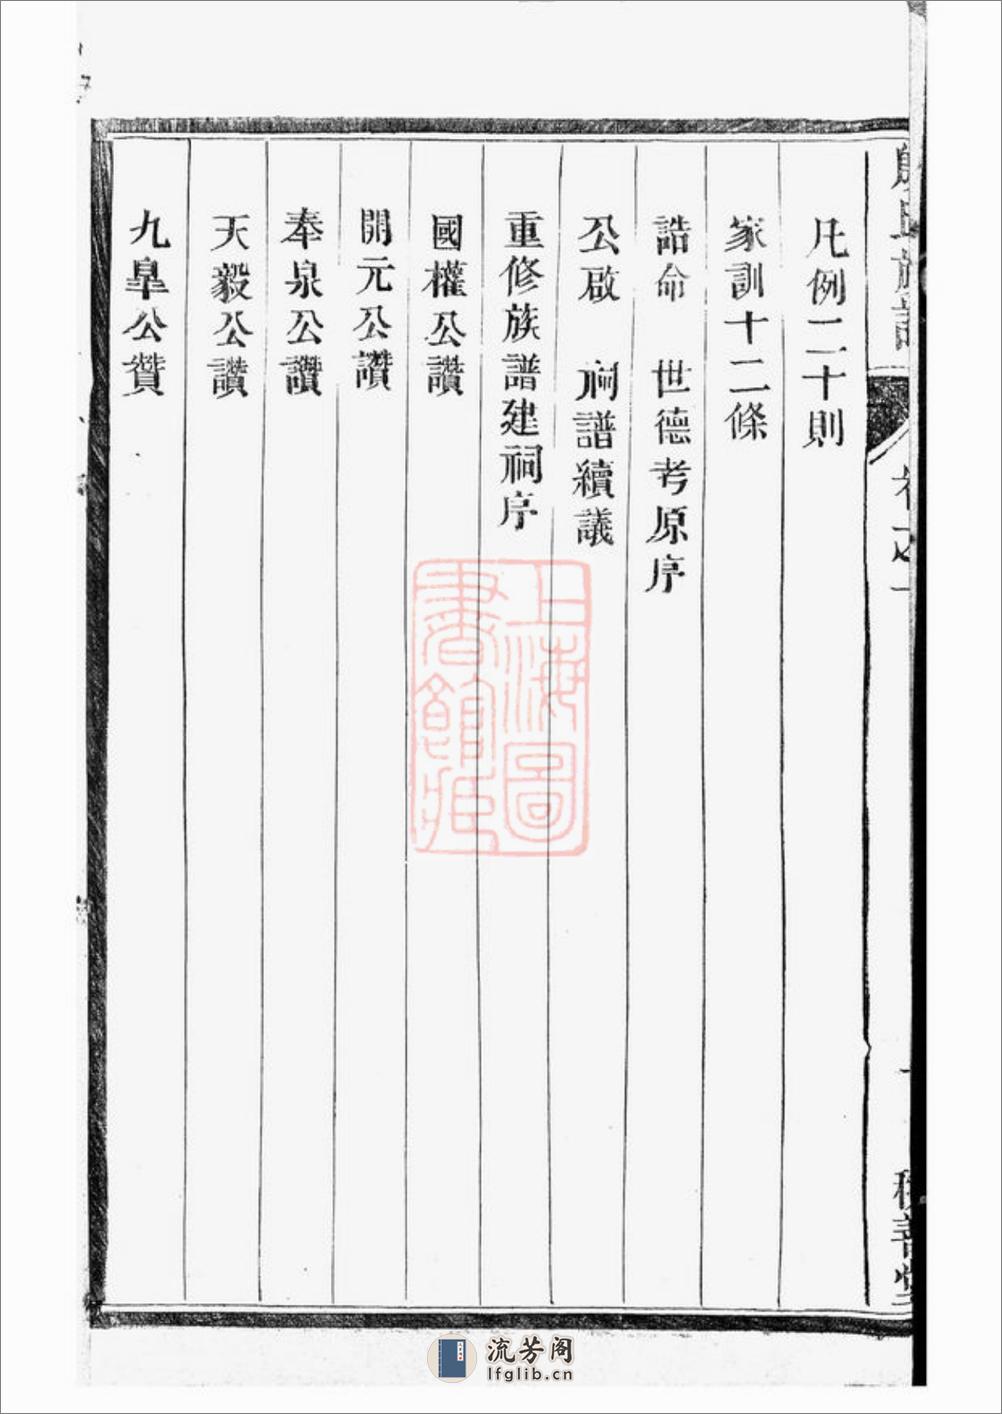 凡例二十則
家訓十二條
誥命　世德考原序
公啟　祠譜續議
重修族譜建祠序
國權公讚
開元公讚
奉泉公讚
天毅公讚
九臯公贊
上海圖書館藏
流芳阁
lfglib.cn